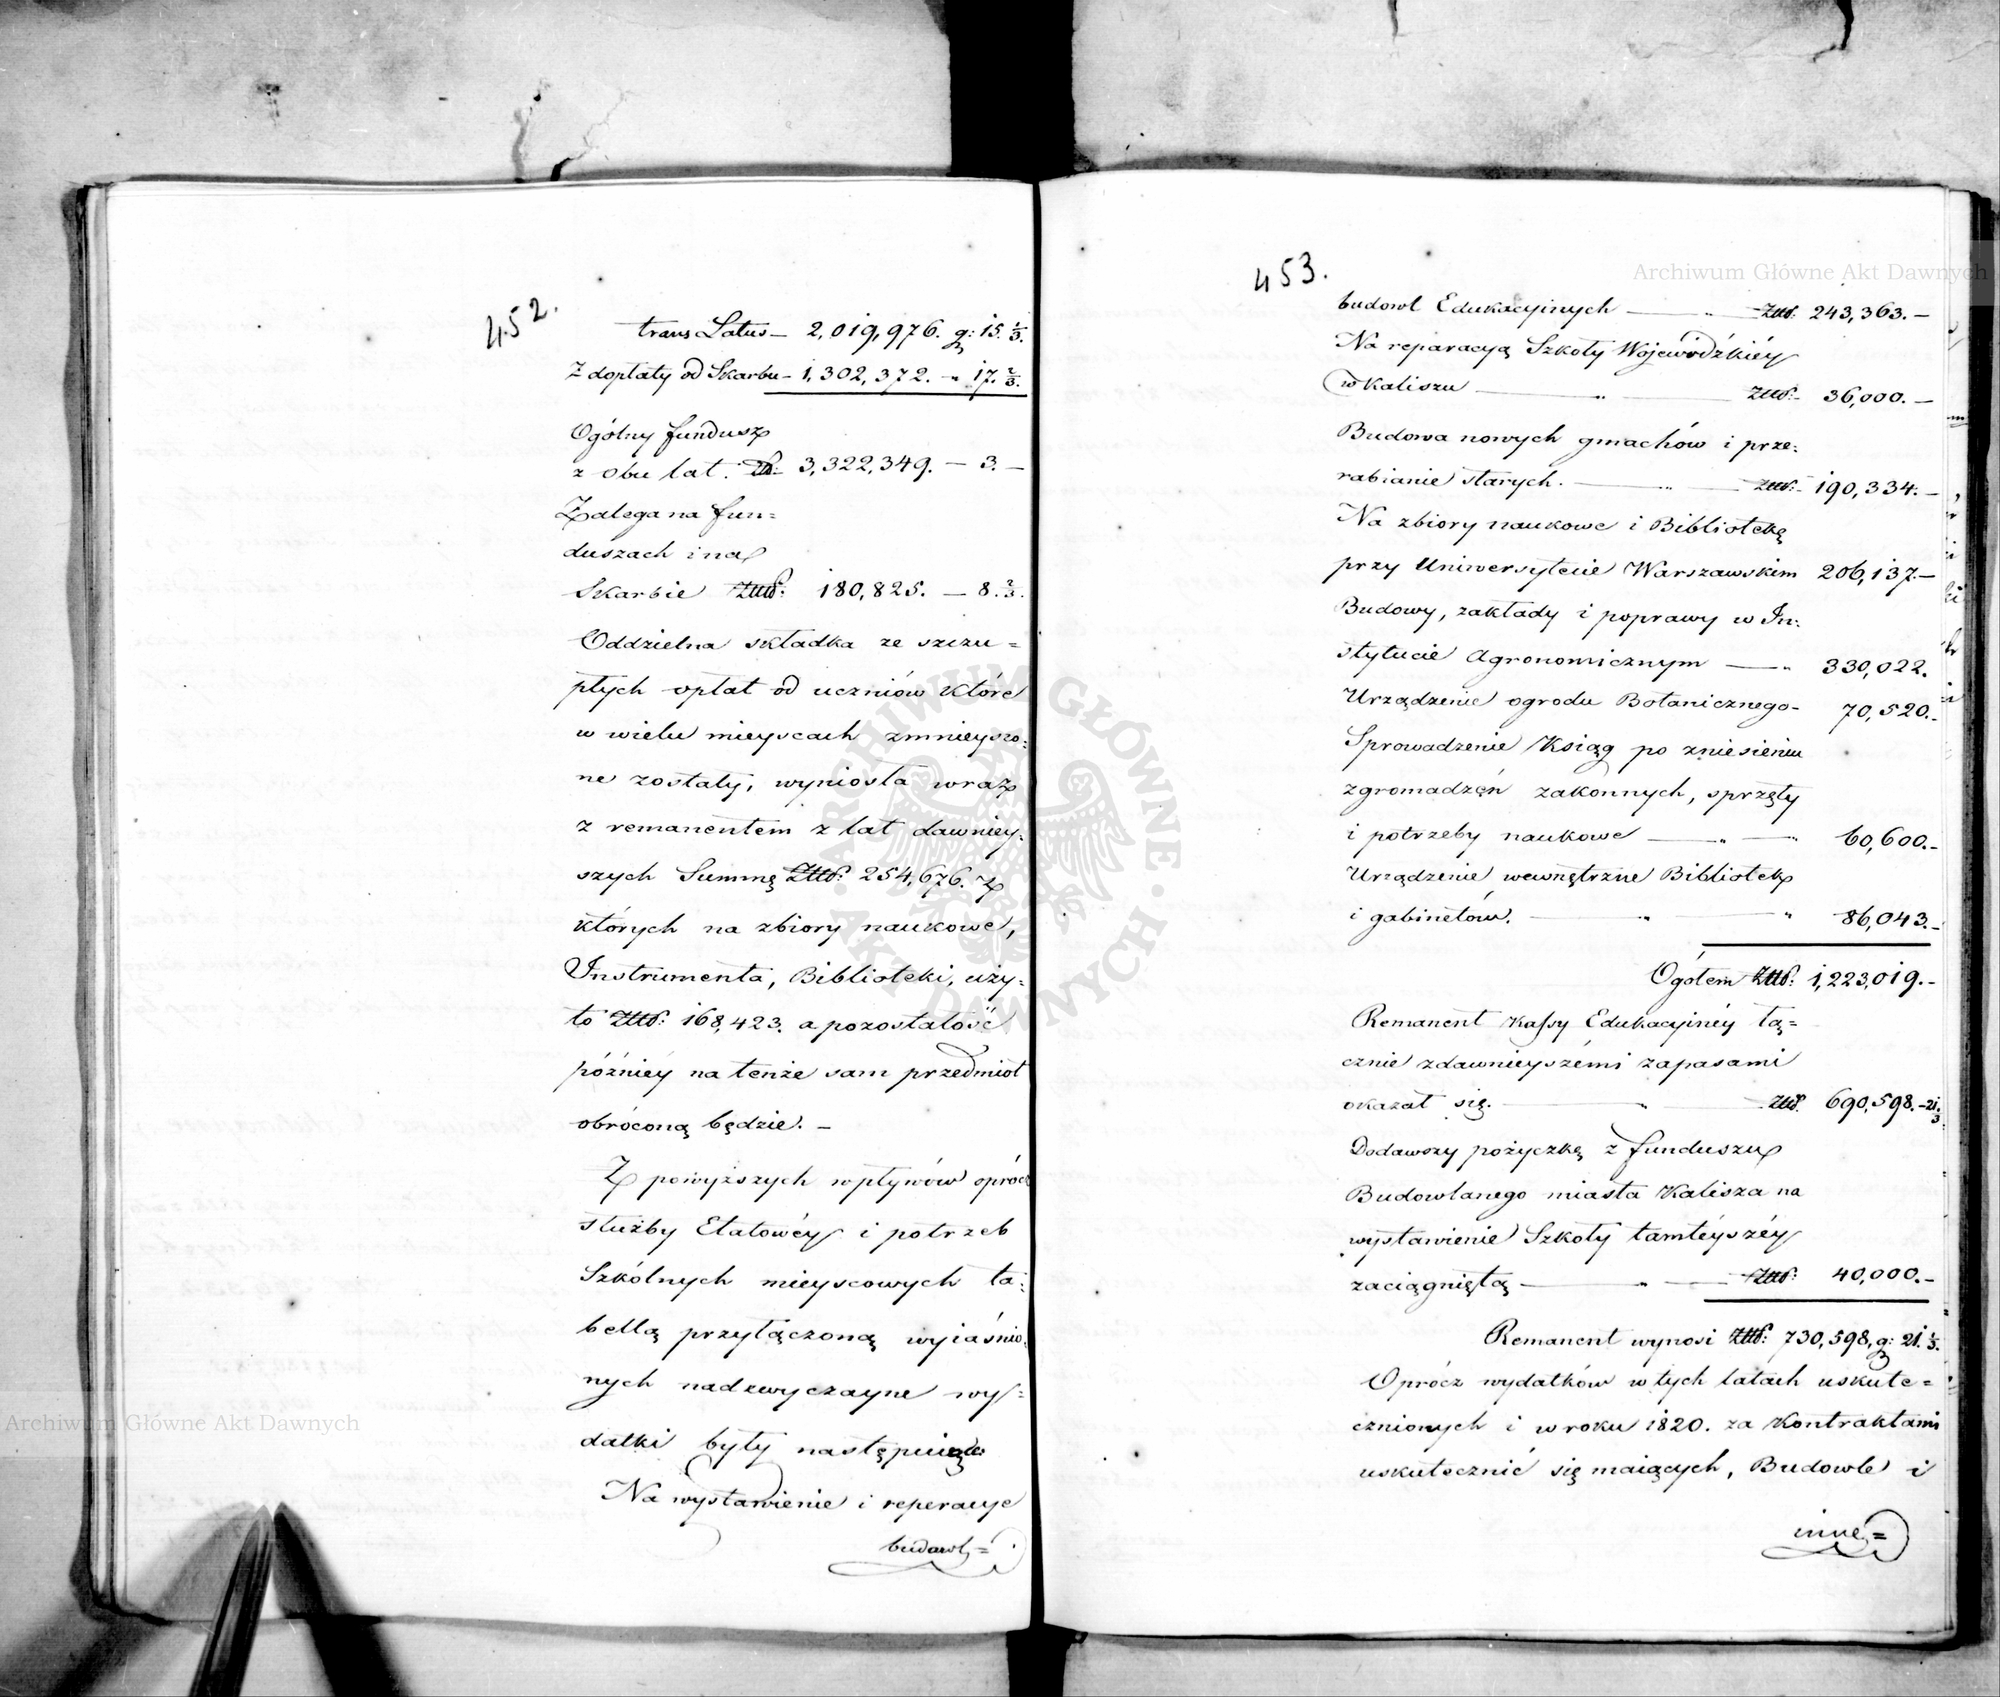 452.
trans Latus — 2,019,976. g: 15. 1/3.
Z dopłaty od Skarbu — 1,302,372. — „ 17. 2/3.
Ogólny fundusz
z obu lat. Złp: 3,322,349. — 3. —
Zalega na fun=
duszach i na
Skarbie Złłp: 180,825. — 8. 2/3.
Oddzielna składka ze szczu=
płych opłat od uczniów które
w wielu mieyscach zmnieyszo=
ne zostały, wyniosła wraz
z remanentem z lat dawniey=
szych Summę Złłp: 254,676. Z
których na zbiory naukowe,
Instrumenta, Biblioteki, uży=
to Złłp: 168,423. a pozostałość
późniéy na tenże sam przedmiot
obróconą będzie. —
Z powyższych wpływów oprócz
służby Etatowéy i potrzeb
Szkólnych mieyscowych ta=
bellą przyłączoną wyiaśnio=
nych nadzwyczayne wy=
datki były następuiące
Na wystawienie i reperacye
budowl=
453.
budowl Edukacyinych — „ — Złłp: 243,363. —
Na reparacyą Szkoły Wojewódzkiéy
w Kaliszu — „ — Złłp: 36,000. —
Budowa nowych gmachów i prze=
rabianie starych. — „ — Złłp: 190,334. —
Na zbiory naukowe i Bibliotekę
przy Uniwersytecie Warszawskim 206,137. —
Budowy, zakłady i poprawy w In=
stytucie Agronomicznym — „ 330,022.
Urządzenie ogrodu Botanicznego — 70,520. —
Sprowadzenie Ksiąg po zniesieniu
zgromadzéń zakonnych, sprzęty
i potrzeby naukowe — „ — „ 60,600. —
Urządzenie wewnętrzne Bibliotek
i gabinetów. — „ — „ 86,043. —
Ogółem Złłp: 1,223,019. —
Remanent Kassy Edukacyinéy łą=
cznie z dawnieyszémi zapasami
okazał się. — „ — Złłp. 690,598. — 21. 1/3.
Dodawszy pożyczkę z funduszu
Budowlanego miasta Kalisza na
wystawienie Szkoły tamtéyszéy
zaciągniętą — „ — Złłp: 40,000. —
Remanent wynosi Złłp: 730,598, g: 21. 1/3.
Oprócz wydatków w tych latach uskute=
cznionych i w roku 1820. za Kontraktami
uskutecznić się maiących, Budowle i
inne=
Archiwum Główne Akt Dawnych
Archiwum Główne Akt Dawnych
ARCHIWUM GŁÓWNE · AKT DAWNYCH ·